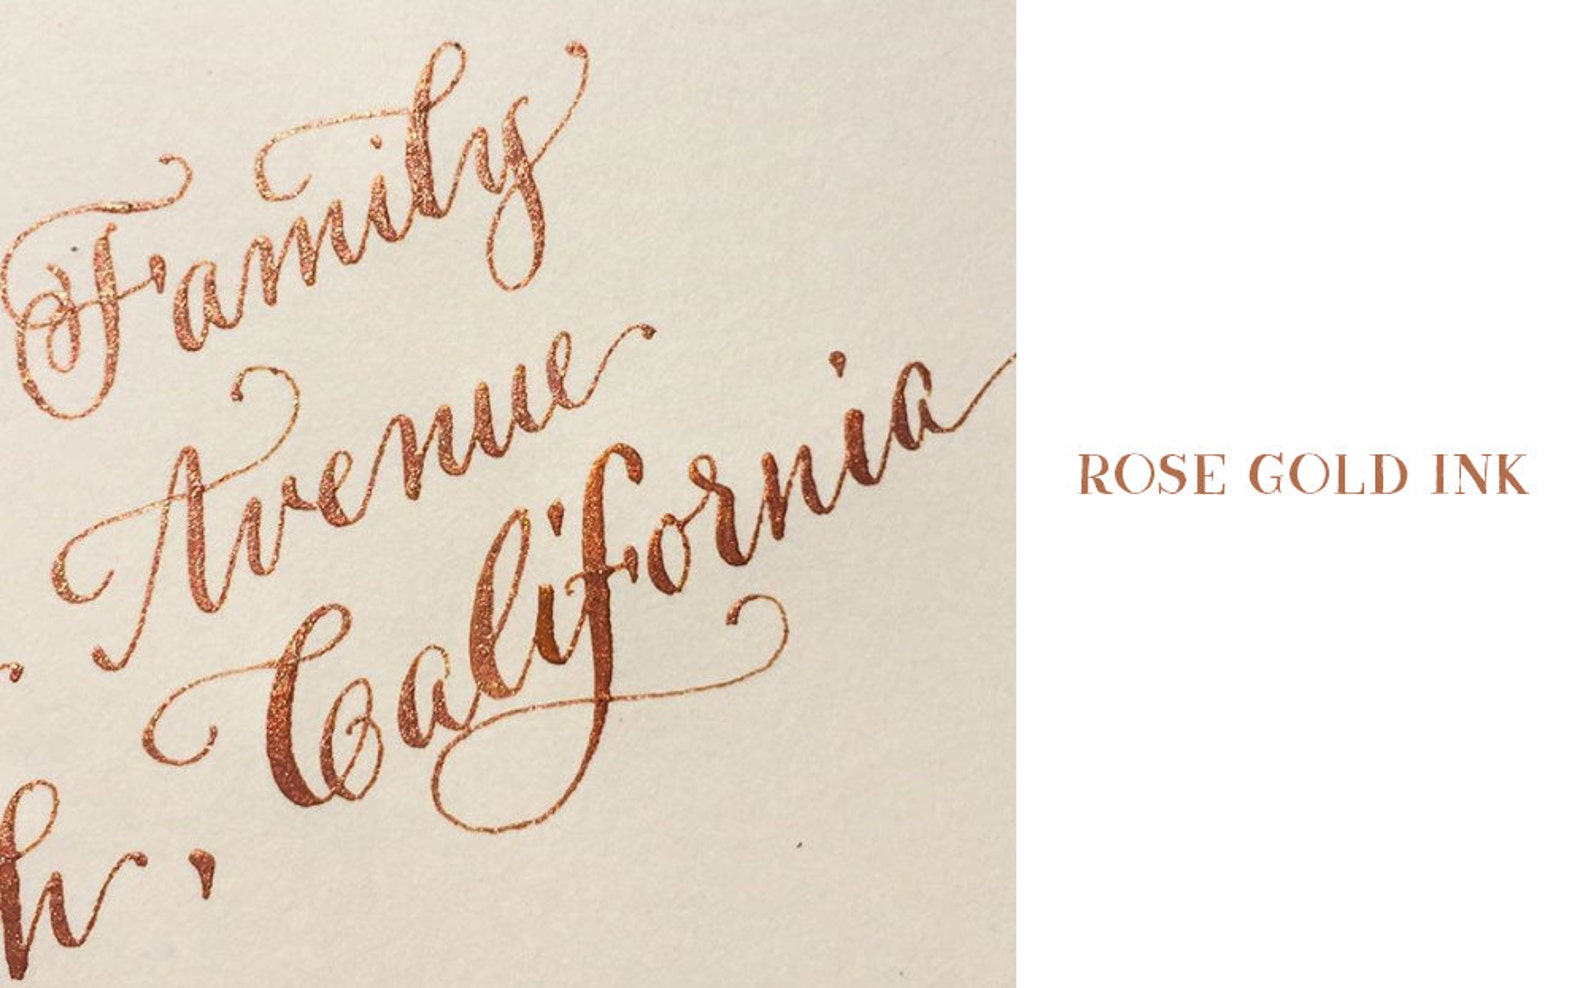 Family
Avenue
California
h,
ROSE GOLD INK